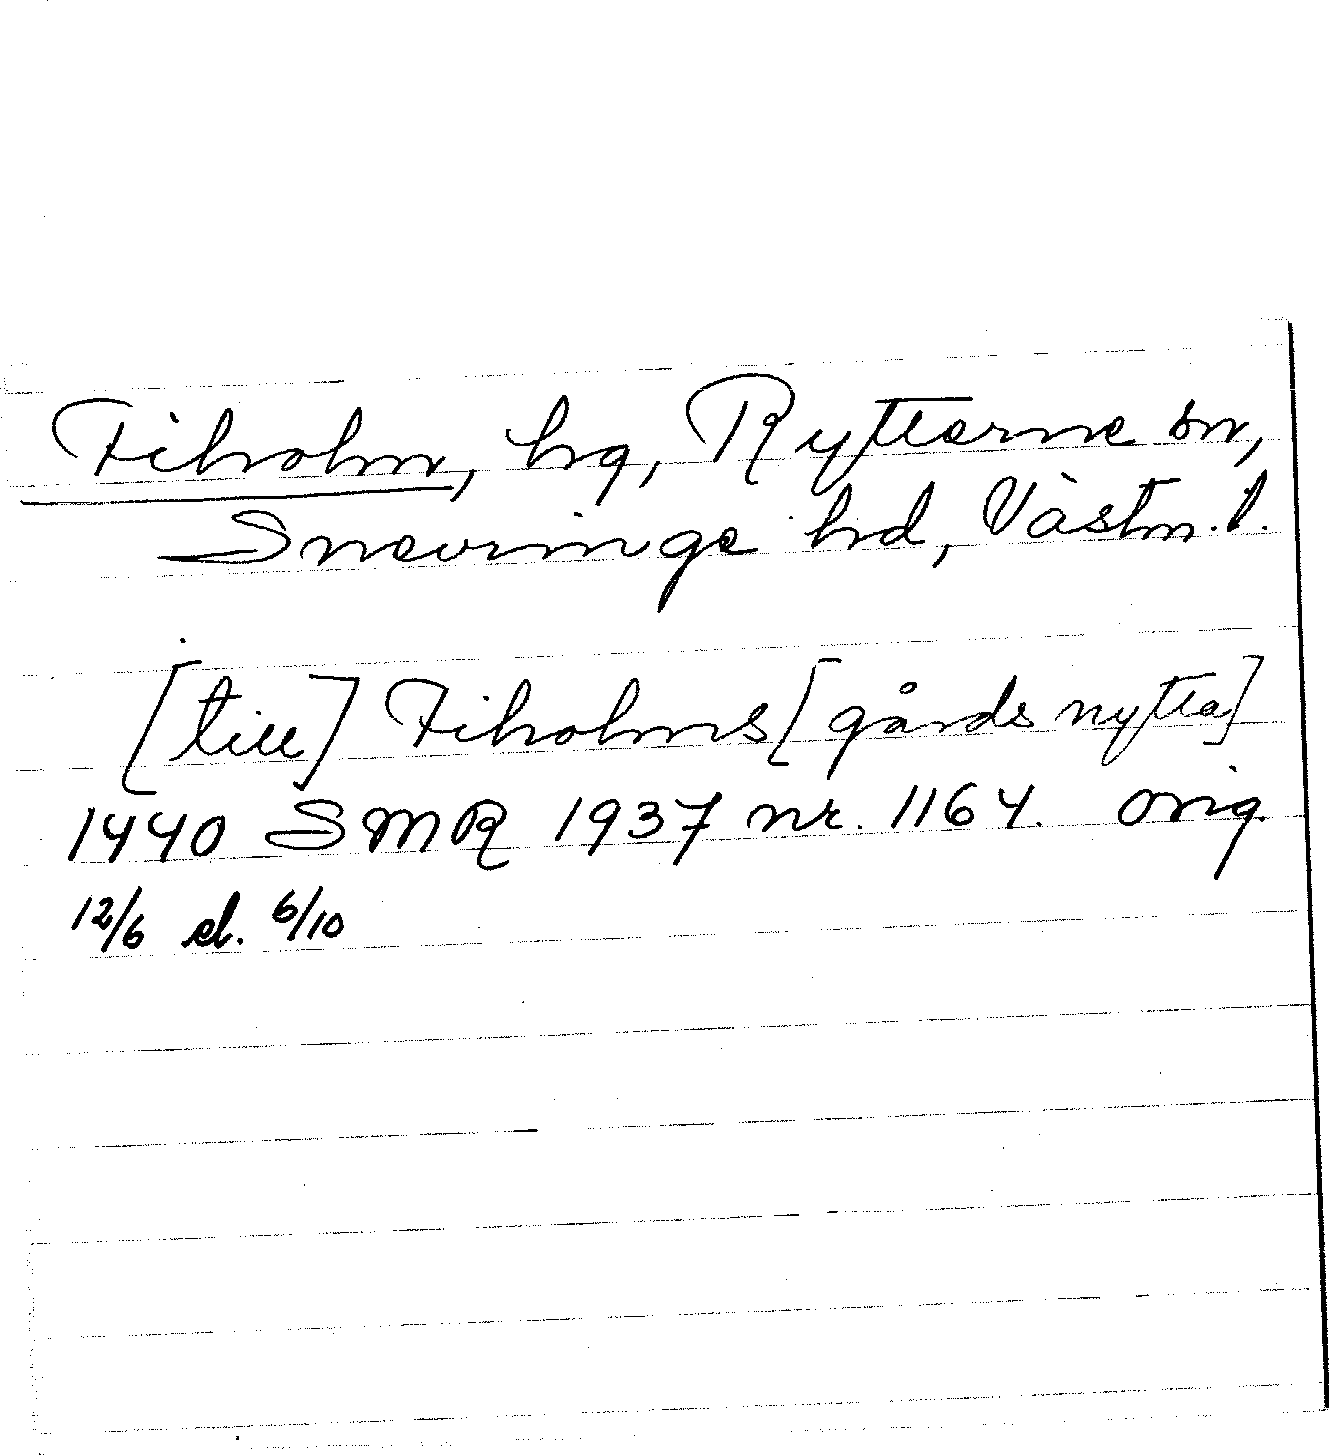 Fiholm, hg, Rytterne sn,
Snevringe hd, Västm. l.
[till] Fiholms [gårds nytta]
1440 SMR 1937 nr. 1164. orig.
12/6 el. 6/10